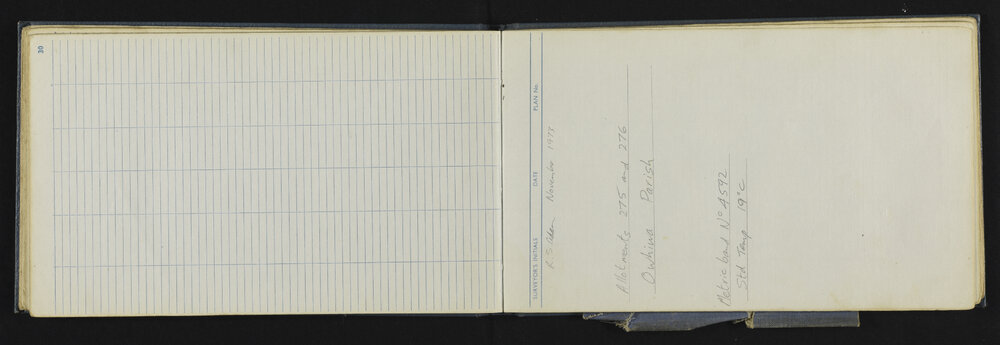 30
SURVEYOR'S INITIALS DATE PLAN No.
R. S. November 1973
Allotments 275 and 276
Owhiwa Parish
Metric band No 4592
Std Temp 19°C